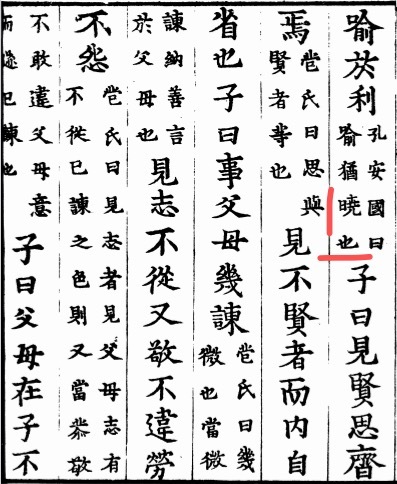 喻於利孔安國曰喻猶曉也子曰見賢思齊
焉苞氏曰思與賢者等也見不賢者而内自
省也子曰事父母幾諫苞氏曰幾微也當微
諫納善言於父母也見志不從又敬不違勞
不怨苞氏曰見志者見父母志有不從己諫之色則又當恭敬
不敢違父母意而遂己諫也子曰父母在子不